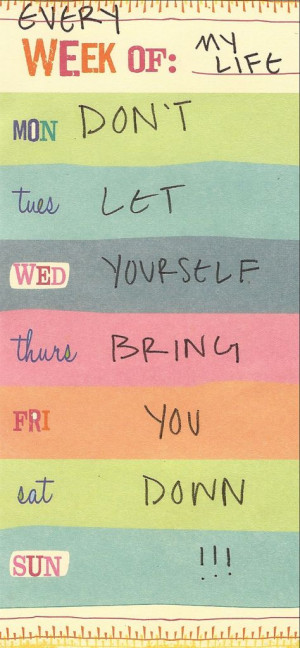 EVERY
WEEK OF: MY LIFE
MON DON'T
tues LET
WED YOURSELF
thurs BRING
FRI YOU
sat DOWN
SUN !!!